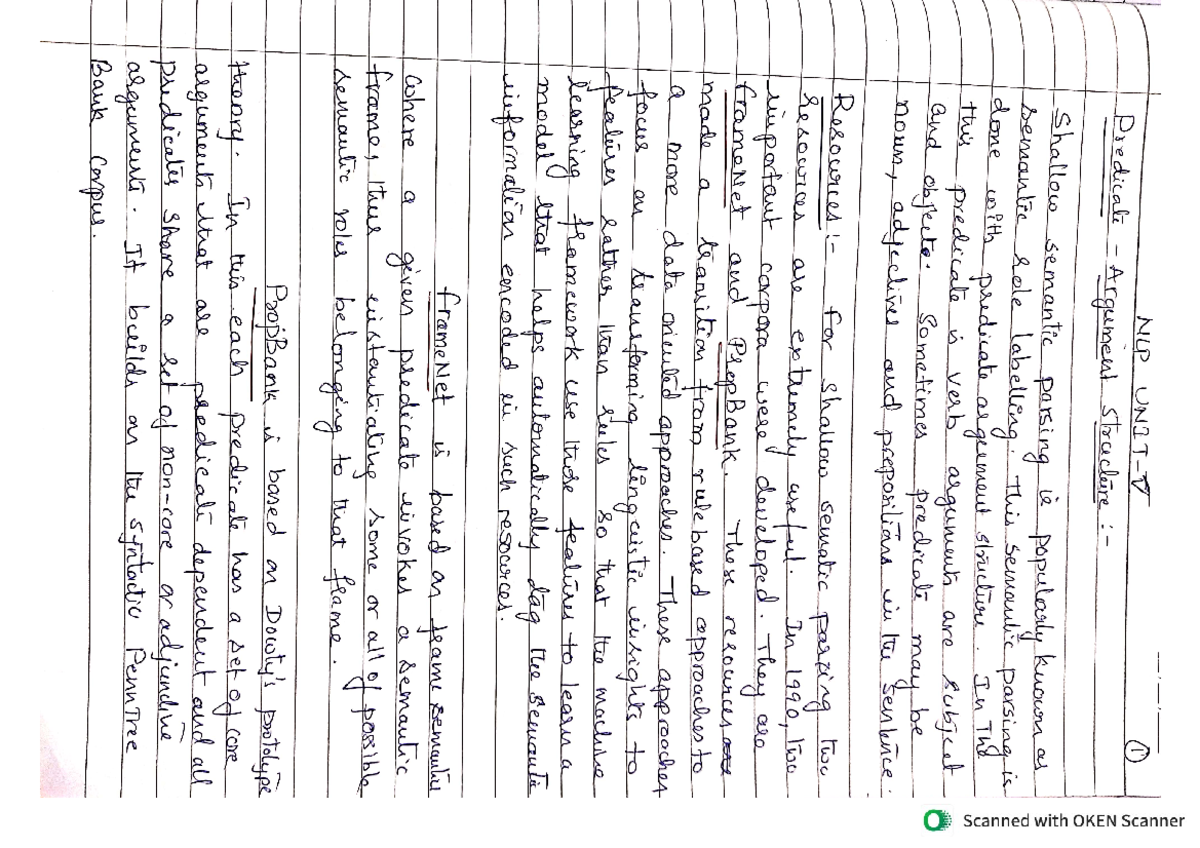 NLP UNIT-V
①
Predicate - Argument structure :-
Shallow semantic parsing is popularly known as
semantic role labelling. This semantic parsing is
done with predicate argument structure. In The
this predicate is verb argument are subject
and objects. Sometimes predicate may be
noun, adjectives and prepositions in the sentence.
Resources :- For Shallow sematic parsing two
resources are extremely useful. In 1990, two
important corpora were developed. They are
FrameNet and PropBank. These resources
made a transition from rule based approaches to
a more data oriented approaches. These approaches
focus on transforming linguistic insights to
features rather than rules so that the machine
learning framework use those features to learn a
model that helps automatically tag the semantic
information encoded in such resources.
FrameNet is based on frame semantic
where a given predicate invokes a semantic
frame, thus instantiating some or all of possible
semantic roles belonging to that frame.
PropBank is based on Dowty's prototype
theory. In this each predicate has a set of core
arguments that are predicate dependent and all
predicates share a set of non-core or adjunctive
arguments. It builds on the syntactic PennTree
Bank corpus.
Scanned with OKEN Scanner